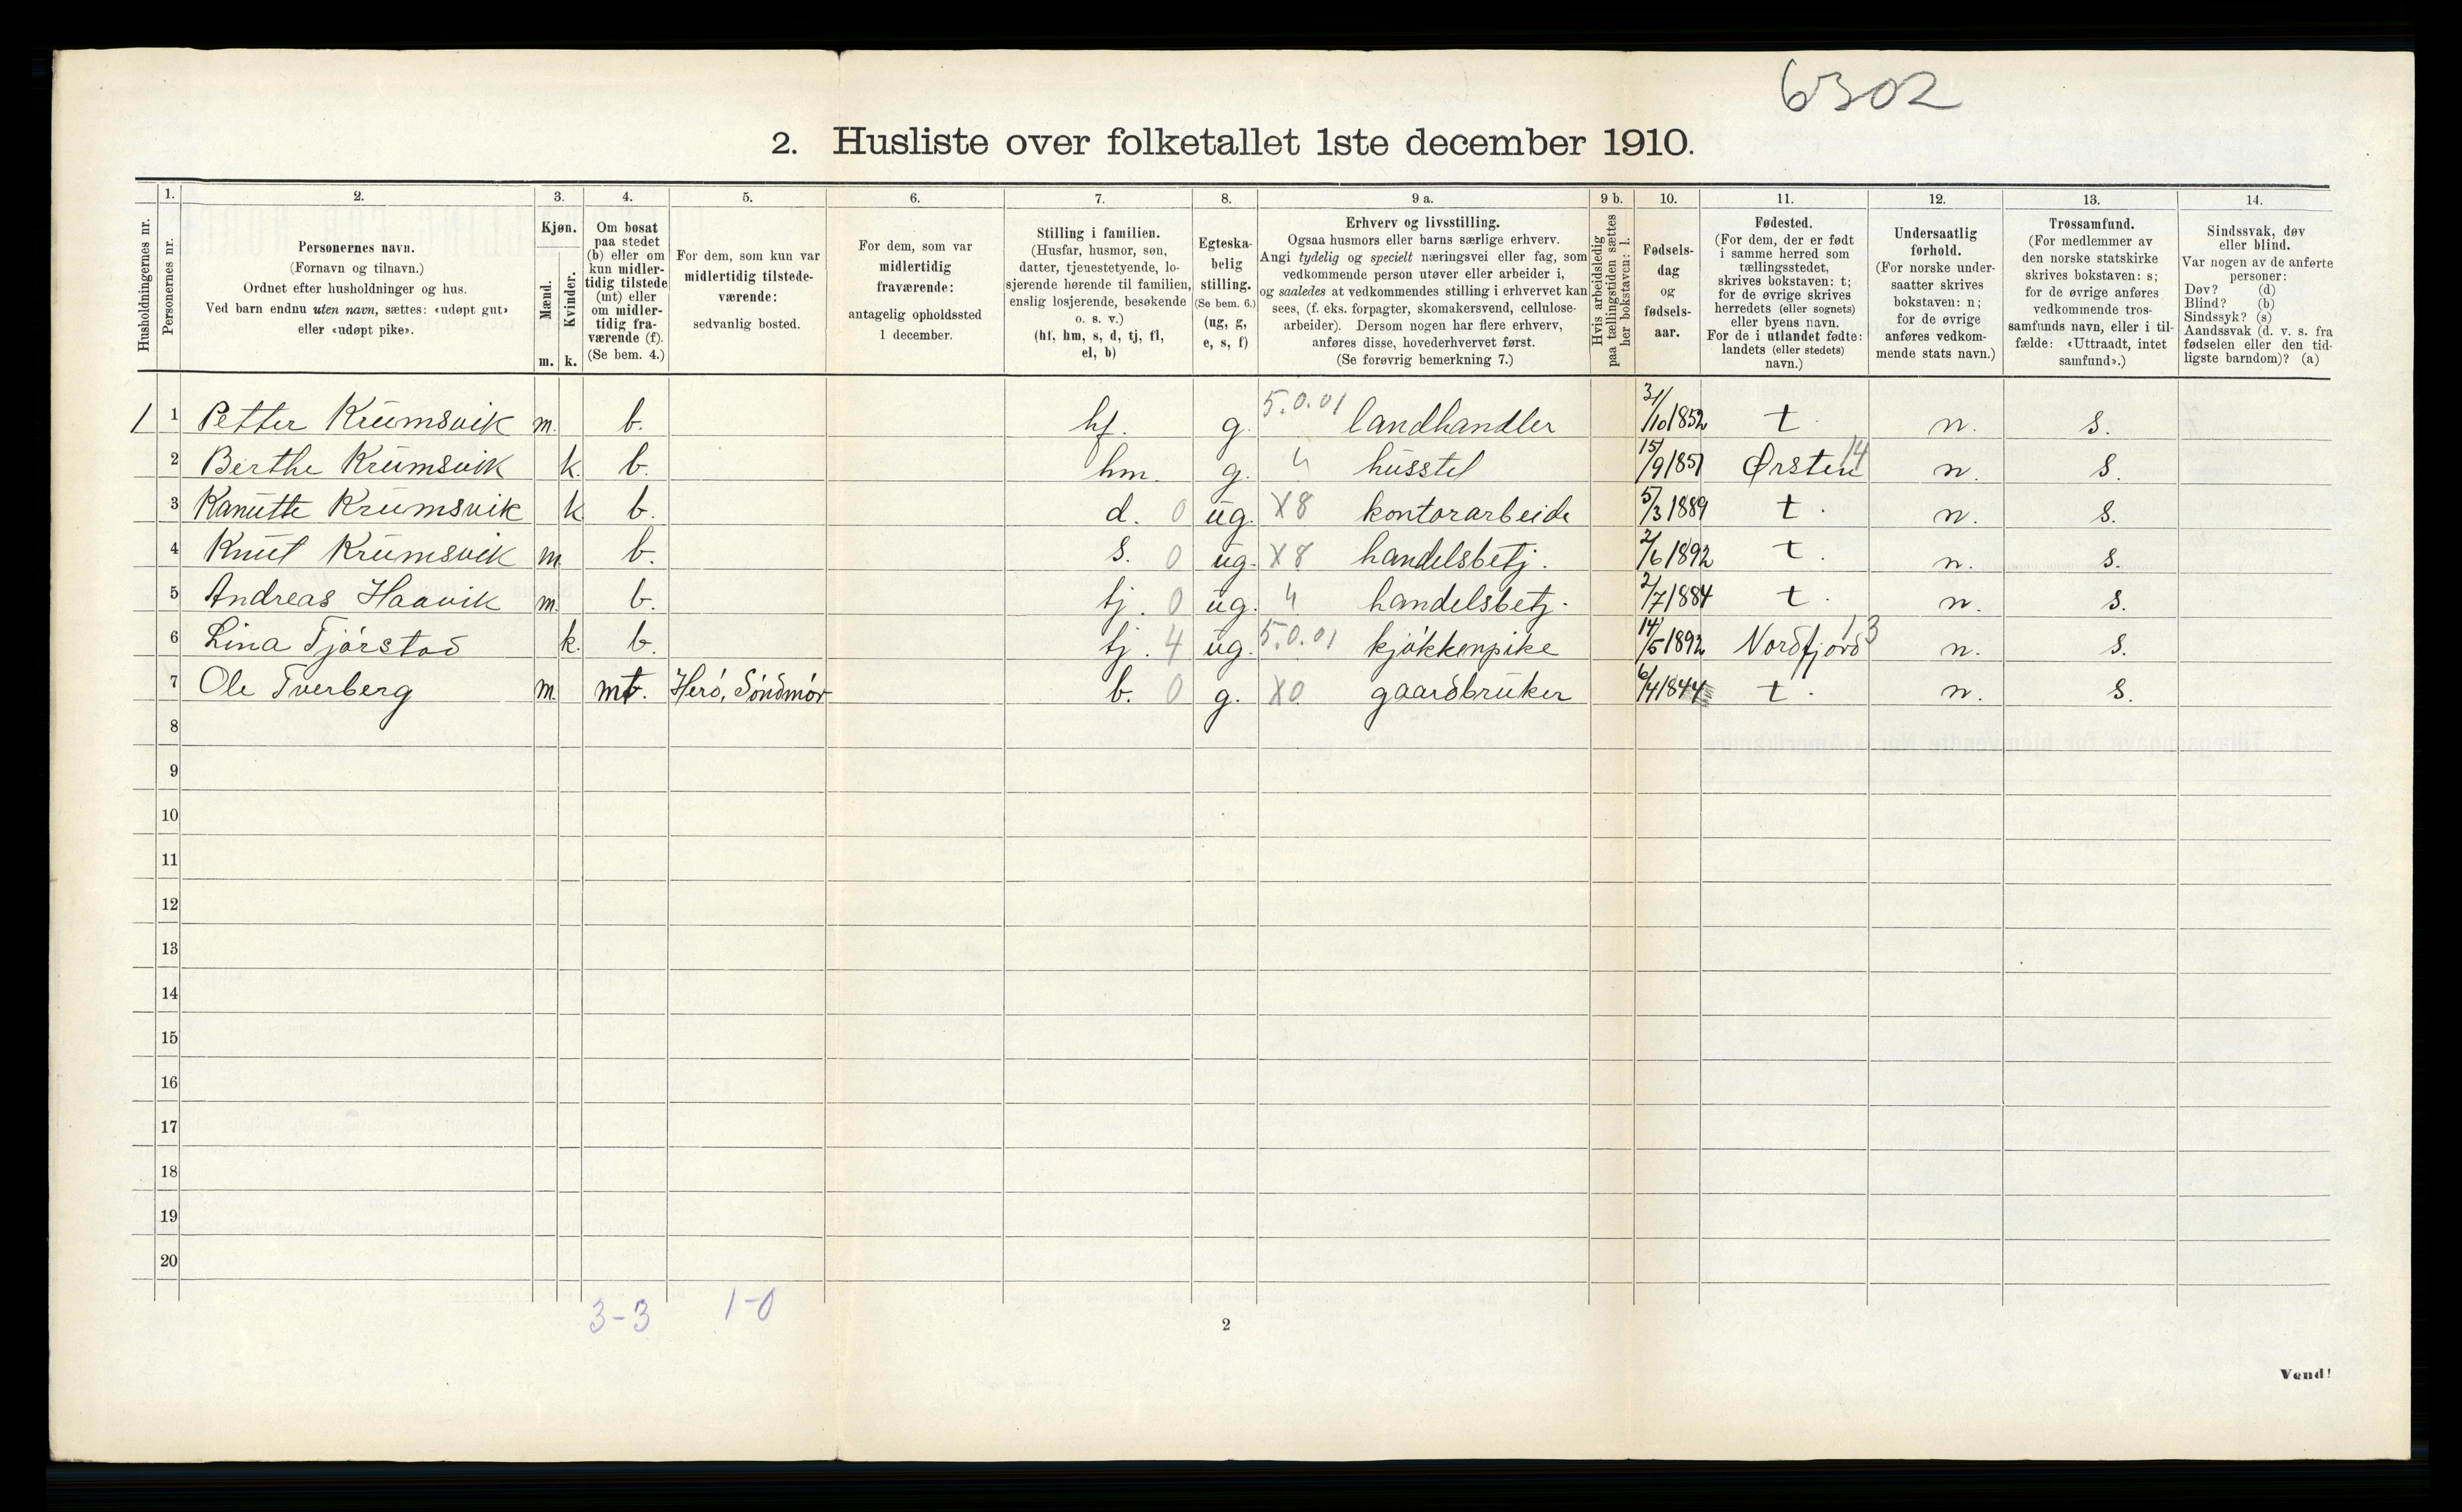 6302
2. Husliste over folketallet 1ste december 1910.
Husholdningernes nr.
1.
Personernes nr.
2.
Personernes navn.
(Fornavn og tilnavn.)
Ordnet efter husholdninger og hus.
Ved barn endnu uten navn, sættes: «udøpt gut»
eller «udøpt pike».
3.
Kjøn.
Mænd.
Kvinder.
m. k.
4.
Om bosat
paa stedet
(b) eller om
kun midler-
tidig tilstede
(mt) eller
om midler-
tidig fra-
værende (f).
(Se bem. 4.)
5.
For dem, som kun var
midlertidig tilstede-
værende:
sedvanlig bosted.
6.
For dem, som var
midlertidig
fraværende:
antagelig opholdssted
1 december.
7.
Stilling i familien.
(Husfar, husmor, søn,
datter, tjenestetyende, lo-
sjerende hørende til familien,
enslig losjerende, besøkende
o. s. v.)
(hf, hm, s, d, tj, fl,
el, b)
8.
Egteska-
belig
stilling.
(Se bem. 6.)
(ug, g,
e, s, f)
9 a.
Erhverv og livsstilling.
Ogsaa husmors eller barns særlige erhverv.
Angi tydelig og specielt næringsvei eller fag, som
vedkommende person utøver eller arbeider i,
og saaledes at vedkommendes stilling i erhvervet kan
sees, (f. eks. forpagter, skomakersvend, cellulose-
arbeider). Dersom nogen har flere erhverv,
anføres disse, hovederhvervet først.
(Se forøvrig bemerkning 7.)
9 b.
Hvis arbeidsledig
paa tællingstiden sættes
her bokstaven: l.
10.
Fødsels-
dag
og
fødsels-
aar.
11.
Fødested.
(For dem, der er født
i samme herred som
tællingsstedet,
skrives bokstaven: t;
for de øvrige skrives
herredets (eller sognets)
eller byens navn.
For de i utlandet fødte:
landets (eller stedets)
navn.)
12.
Undersaatlig
forhold.
(For norske under-
saatter skrives
bokstaven: n;
for de øvrige
anføres vedkom-
mende stats navn.)
13.
Trossamfund.
(For medlemmer av
den norske statskirke
skrives bokstaven: s;
for de øvrige anføres
vedkommende tros-
samfunds navn, eller i til-
fælde: «Uttraadt, intet
samfund».)
14.
Sindssvak, døv
eller blind.
Var nogen av de anførte
personer:
Døv? (d)
Blind? (b)
Sindssyk? (s)
Aandssvak (d. v. s. fra
fødselen eller den tid-
ligste barndom)? (a)
1 1 Petter Krumsvik m. b. hf. g. 5.0.01 landhandler 31/10 1852 t. n. s.
2 Berthe Krumsvik k. b. hm. g. 4 husstel 15/9 1851 Ørsten 14 n. s.
3 Kanutte Krumsvik k b. d. 0 ug. X8 kontorarbeide 5/3 1889 t. n. s.
4 Knut Krumsvik m. b. s. 0 ug. X8 handelsbetj. 2/6 1892 t. n. s.
5 Andreas Haavik m. b. tj. 0 ug. 4 handelsbetj. 2/7 1884 t. n. s.
6 Lina Tjørstad k. b. tj. 4 ug. 5.0.01 kjøkkenpike 14/5 1892 Nordfjord 13 n. s.
7 Ole Tverberg m. mt. Herø, Søndmør b. 0 g. X0 gaardbruker 6/4 1844 t. n. s.
8
9
10
11
12
13
14
15
16
17
18
19
20
3-3 1-0
2
Vend!